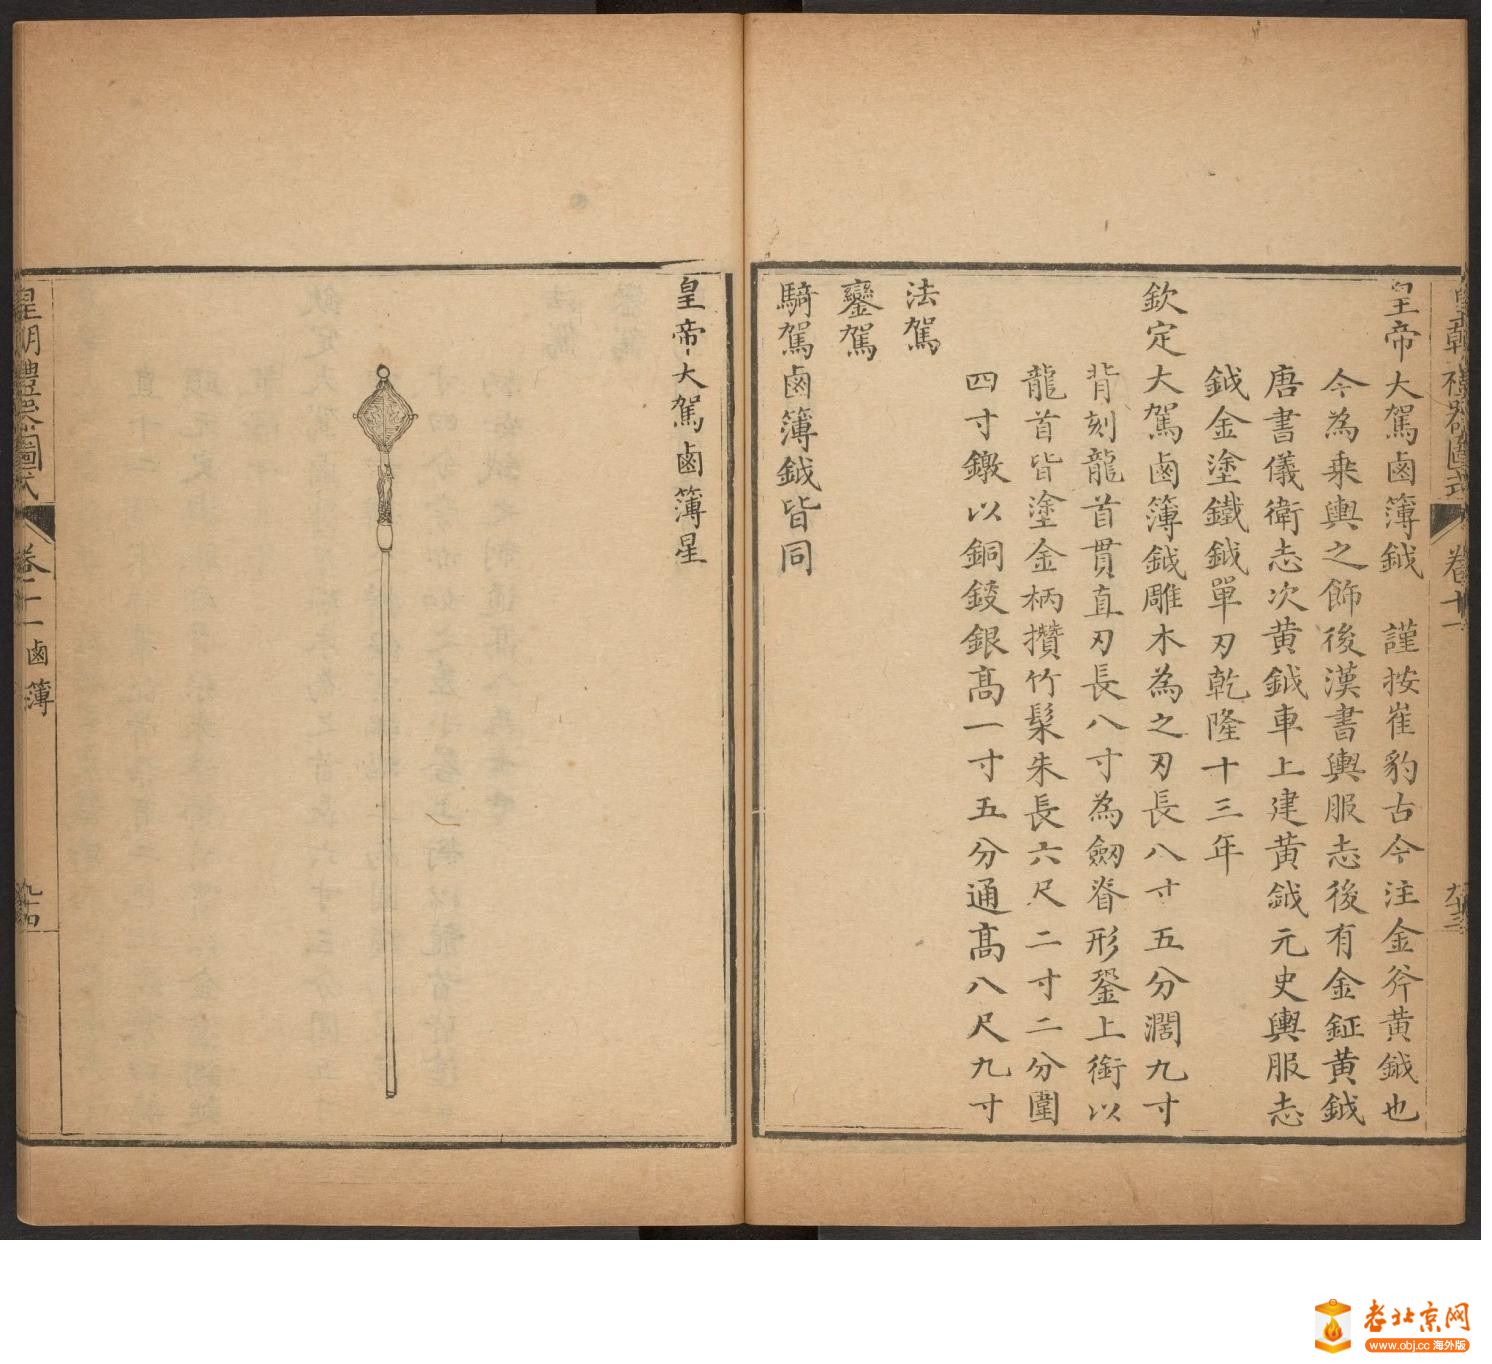 皇朝禮器圖式
卷十一
九十三
皇帝大駕鹵簿鉞 謹按崔豹古今注金斧黃鉞也
今為乘輿之飾後漢書輿服志後有金鉦黃鉞
唐書儀衛志次黃鉞車上建黃鉞元史輿服志
鉞金塗鐵鉞單刃乾隆十三年
欽定大駕鹵簿鉞雕木為之刃長八寸五分濶九寸
背刻龍首貫直刃長八寸為劒脊形銎上銜以
龍首皆塗金柄攢竹髤朱長六尺二寸二分圍
四寸鐓以銅錽銀高一寸五分通高八尺九寸
法駕
鑾駕
騎駕鹵簿鉞皆同
皇帝大駕鹵簿星
皇朝禮器圖式
卷十一 鹵簿
九十四
老北京网
www.obj.cc 海外版